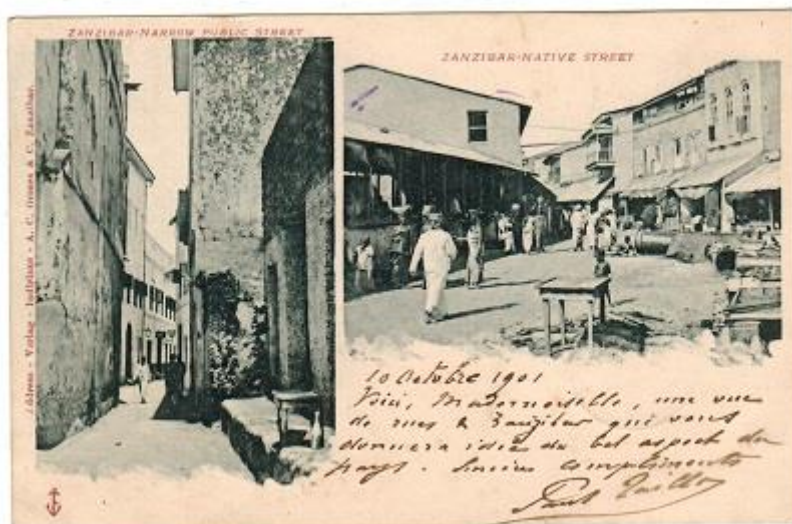 ZANZIBAR-NARROW PUBLIC STREET
ZANZIBAR-NATIVE STREET
Adresse - Verlag - Indirizzo - A. C. Gomes & C. Zanzibar.
10 Octobre 1901
Voici, Mademoiselle, une vue
de rues à Zanzibar qui vous
donnera idée du bel aspect du
pays. Sincères compliments
Paul